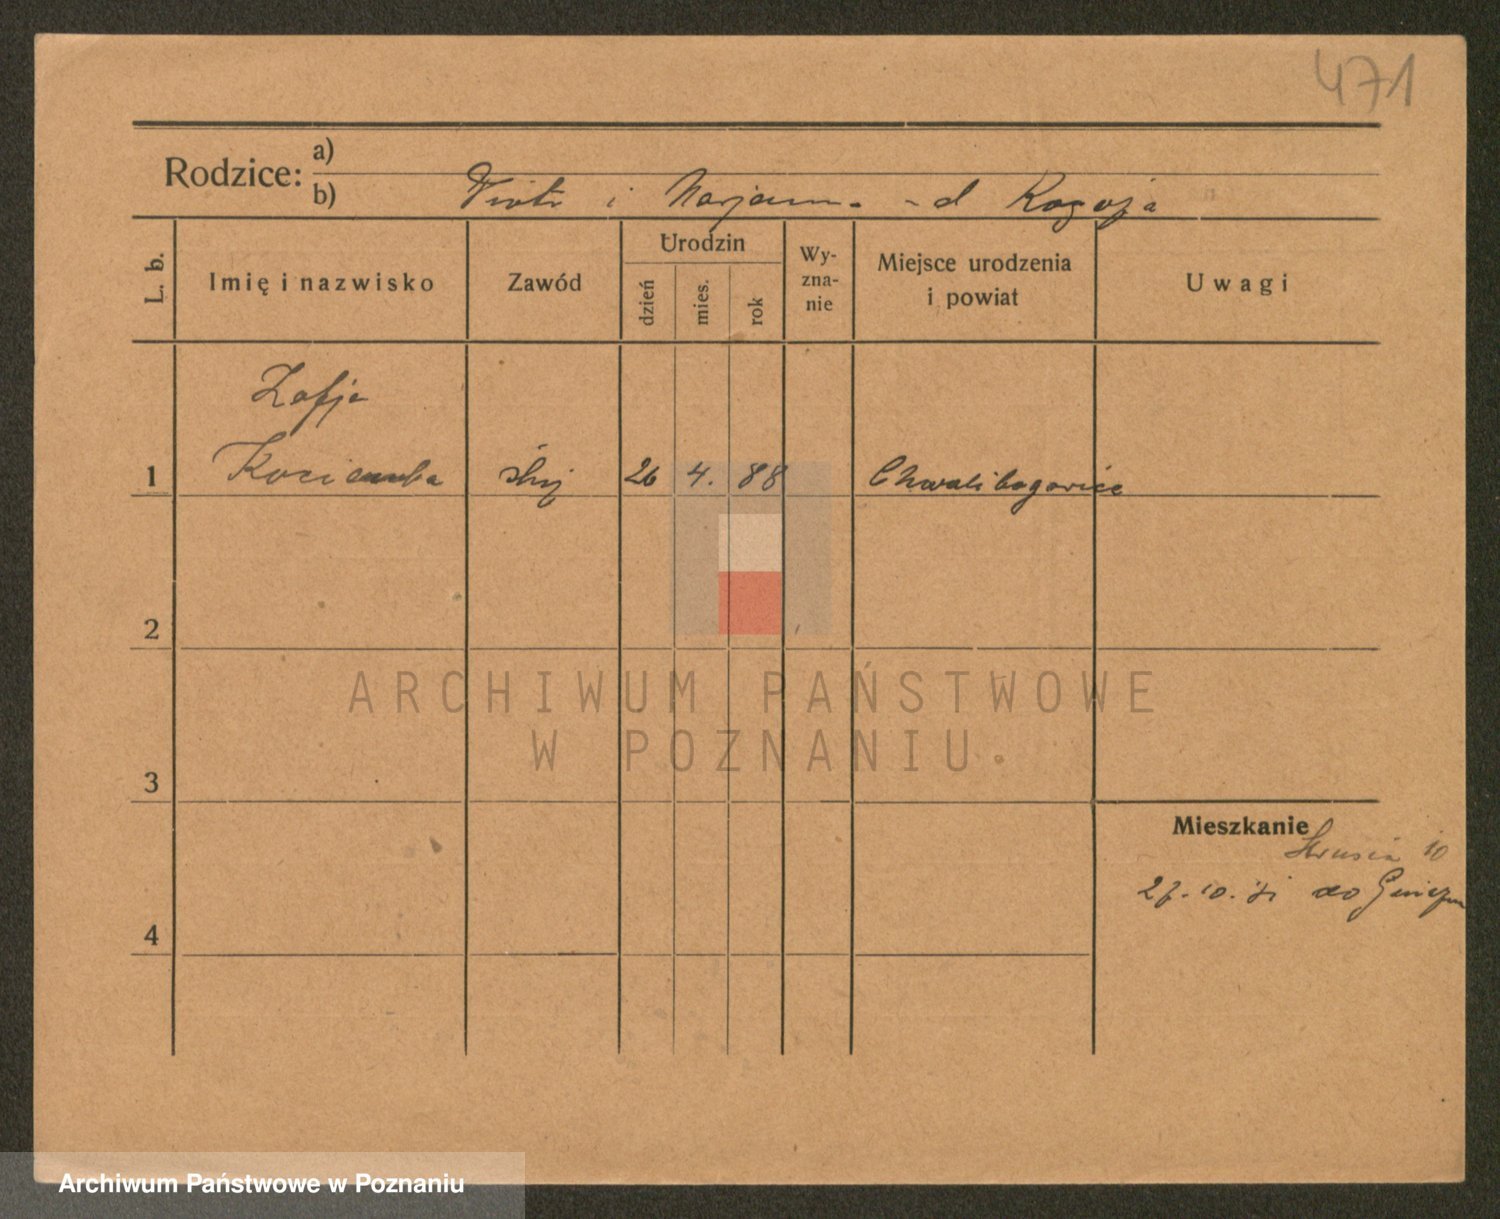 471
Rodzice:
a)
b) Piotr i Marjanna
L. b.
Imię i nazwisko
Zawód
Urodzin
dzień
mies.
rok
Wy-
zna-
nie
Miejsce urodzenia
i powiat
Uwagi
Zofja
1 Kociemba 26 4. 88 Chwalibogowice
2
3
4
Mieszkanie
Strusia 10
27.10.31 do
ARCHIWUM PAŃSTWOWE
W POZNANIU
Archiwum Państwowe w Poznaniu